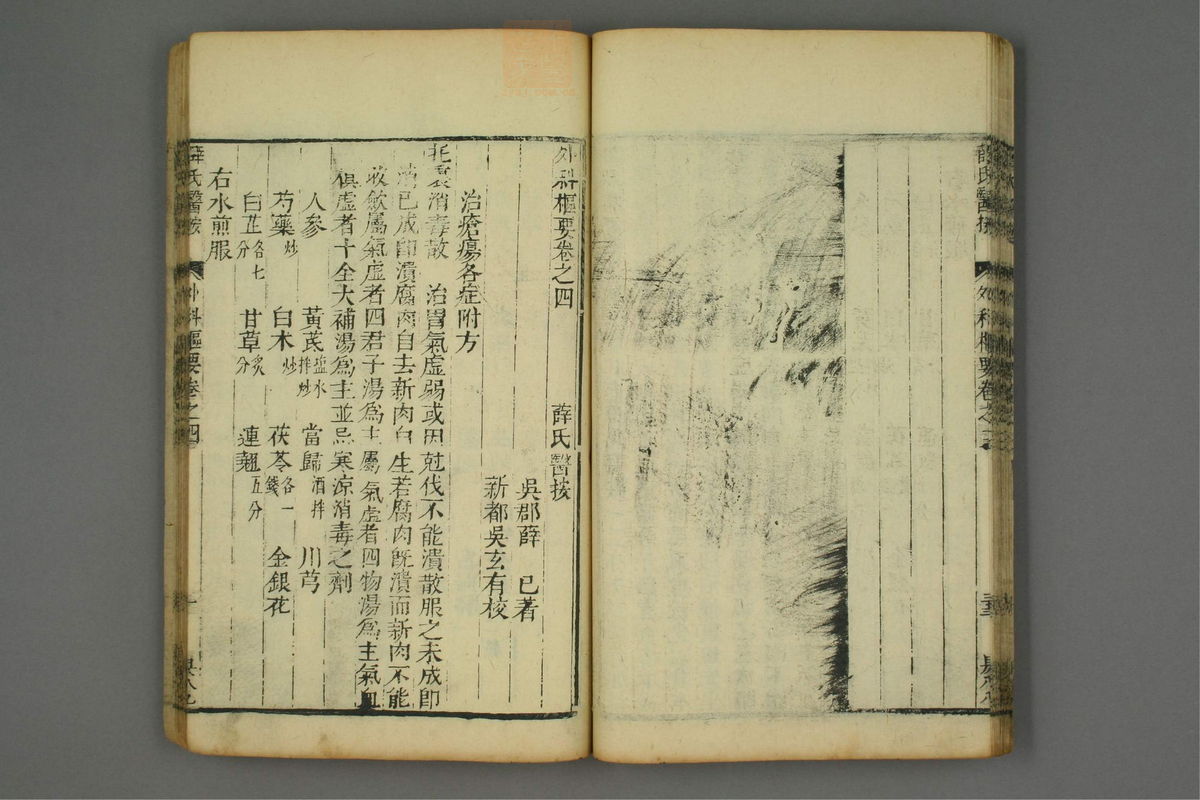 薛氏醫按 外科樞要卷之三
外科樞要卷之四 薛氏醫按
吳郡薛 已著
新都吳玄有校
治瘡瘍各症附方
托裏消毒散 治胃氣虛弱或因尅伐不能潰散服之未成即
消已成即潰腐肉自去新肉自生若腐肉既潰而新肉不能
收斂屬氣虛者四君子湯爲主屬氣虛者四物湯爲主氣血
俱虛者十全大補湯爲主並忌寒涼消毒之劑
人參 黃芪鹽水拌炒 當歸酒拌 川芎
芍藥炒 白朮炒 茯苓各一錢 金銀花
白芷各七分 甘草炙分 連翹五分
右水煎服
薛氏醫按 外科樞要卷之四 一